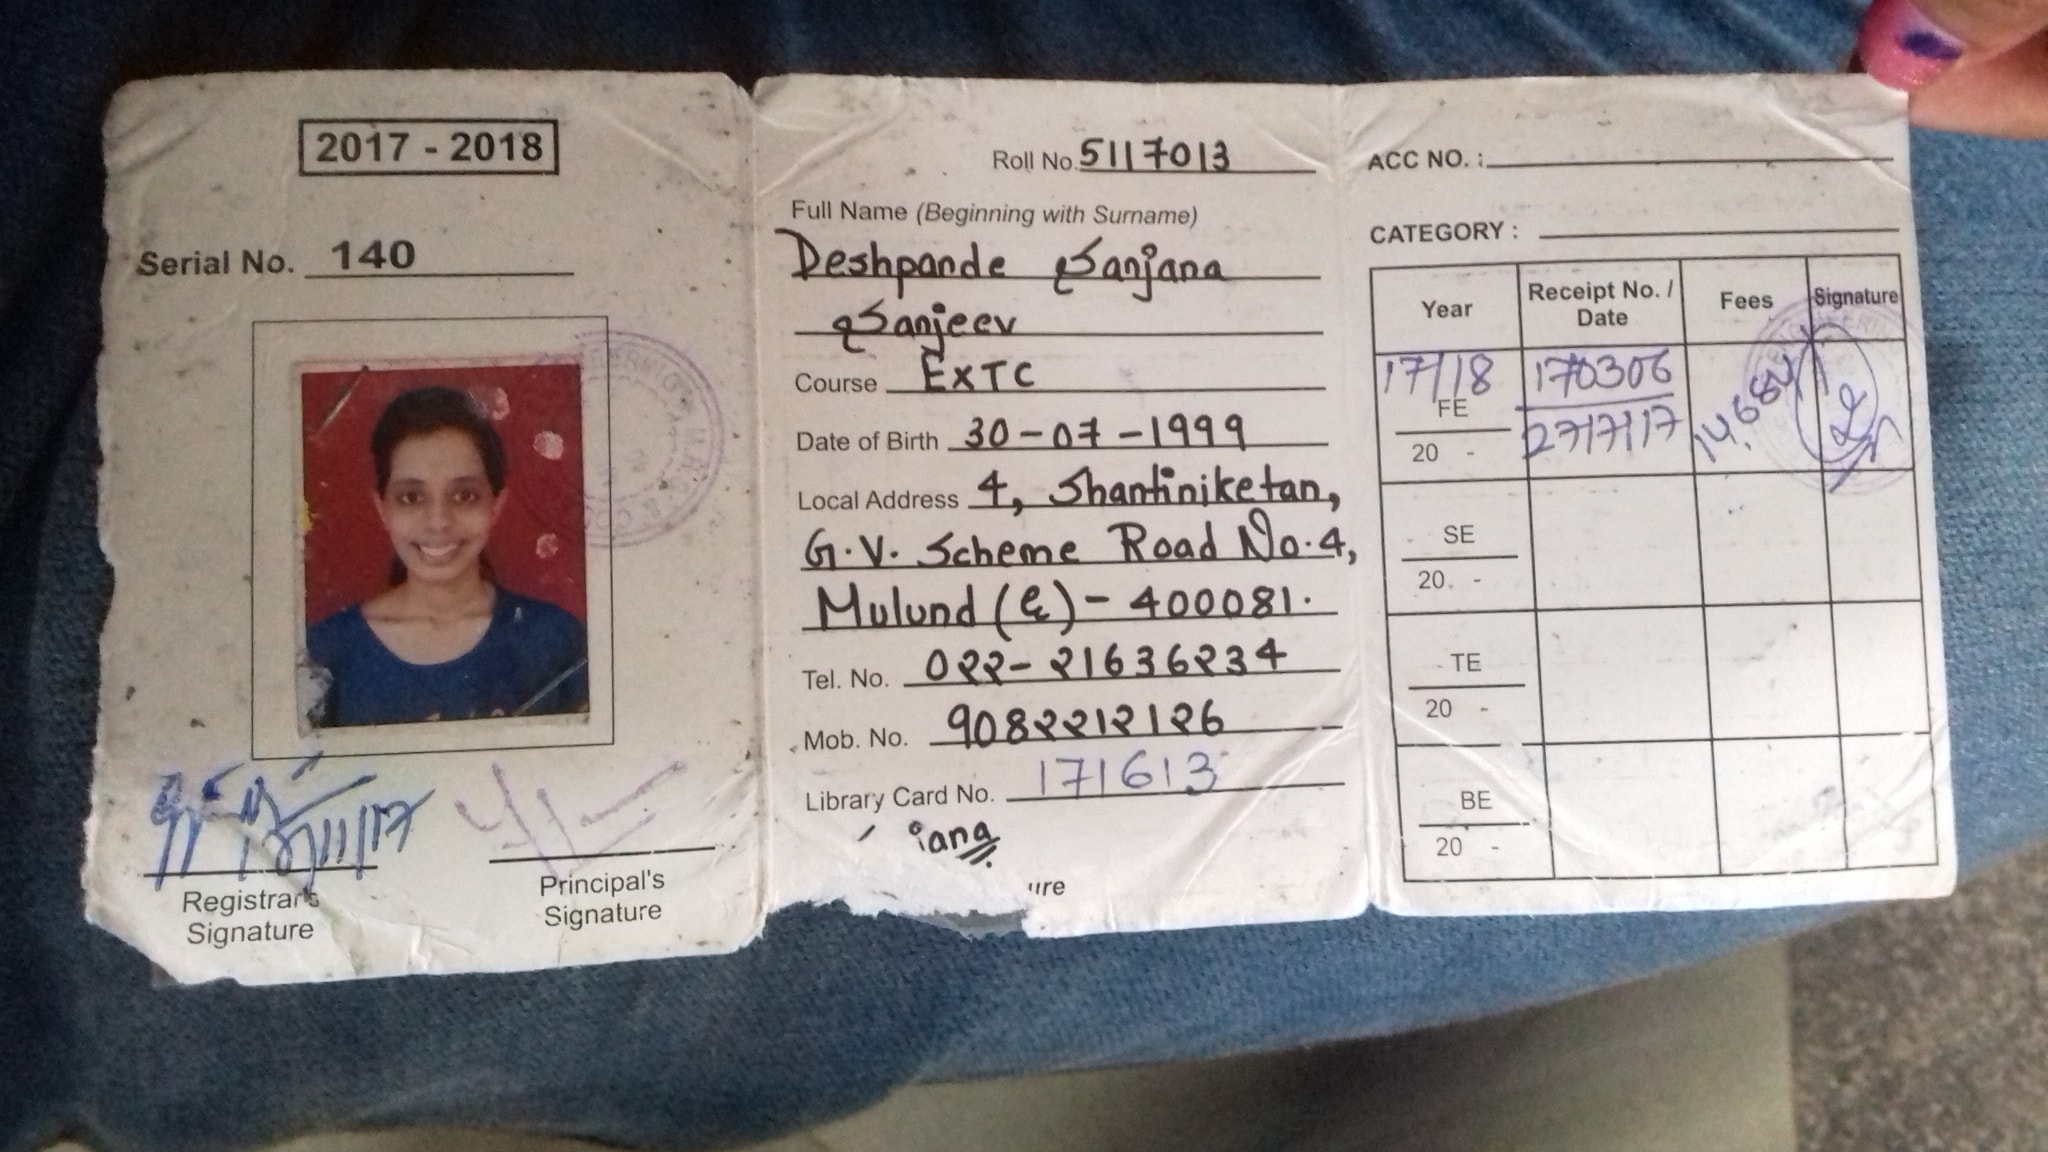 2017 - 2018
Serial No. 140
Registrar's
Signature
Principal's
Signature
Roll No. 5117013
Full Name (Beginning with Surname)
Deshpande Sanjana
Sanjeev
Course EXTC
Date of Birth 30-07-1999
Local Address 4, Shantiniketan,
G.V. Scheme Road No.4,
Mulund (E) - 400081.
Tel. No. 022-21636234
Mob. No. 9082212126
Library Card No. 171613
ACC NO. :
CATEGORY :
Year Receipt No. / Date Fees Signature
17/18 170306
FE
20 - 27/7/17
SE
20. -
TE
20 -
BE
20 -